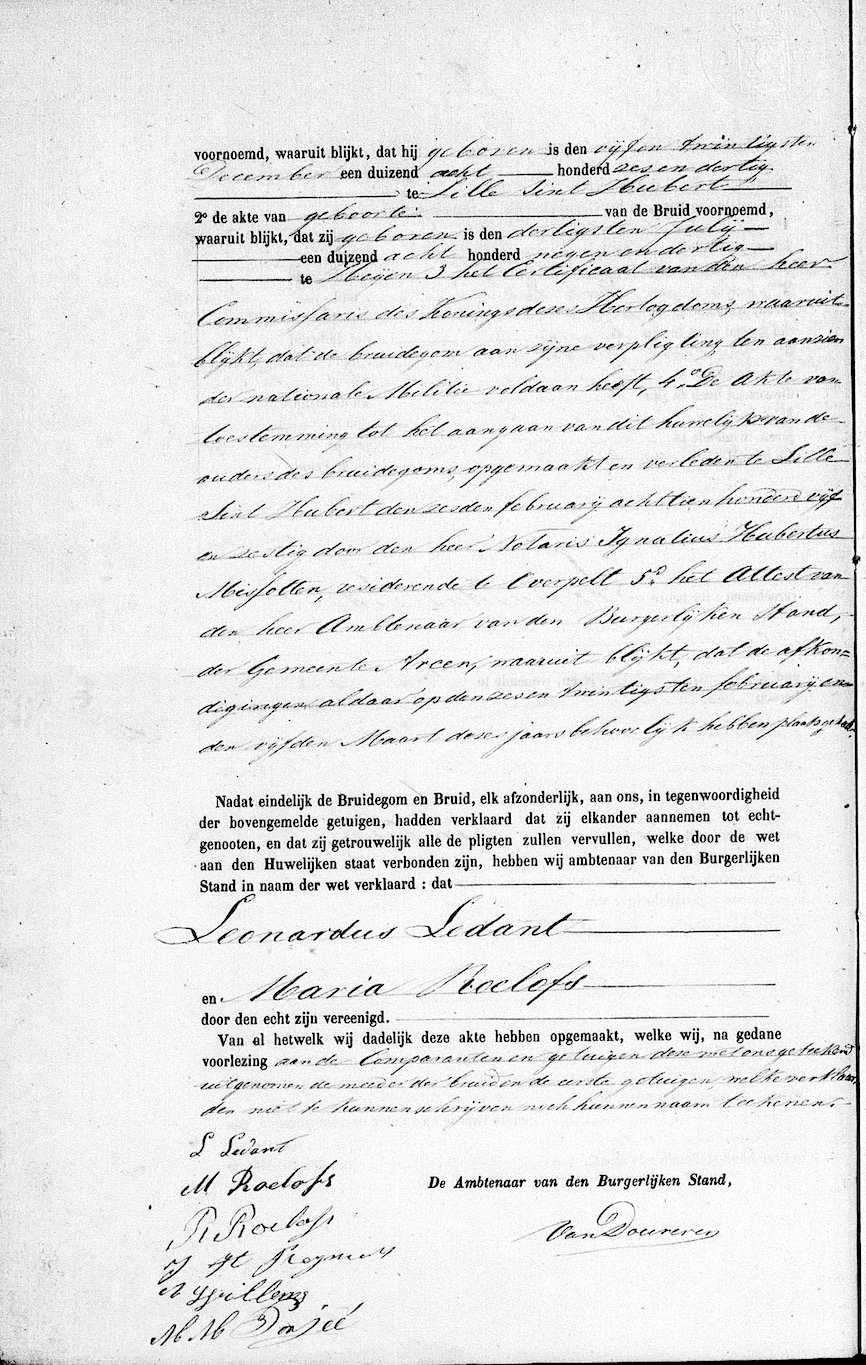 voornoemd, waaruit blijkt, dat hij geboren is den vijf en twintigsten
December een duizend acht honderd zes en dertig
te Lille Sint Hubert
2º de akte van geboorte van de Bruid voornoemd,
waaruit blijkt, dat zij geboren is den dertigsten Julij
een duizend acht honderd negen en dertig
te Heijen 3 het Certificaat van den heer
Commissaris des Konings deses Hertogdoms, waaruit
blijkt, dat de bruidegom aan zijne verpligting ten aanzien
der nationale Militie voldaan heeft, 4.º De Akte van
toestemming tot het aangaan van dit huwelijk van de
ouders des bruidegoms, opgemaakt en verleden te Lille
Sint Hubert den zesden february achttien honderd vijf
en zestig door den heer Notaris Ignatius Hubertus
Missotten, residerende te Overpelt 5º het Attest van
den heer Ambtenaar van den Burgerlijken Stand,
der Gemeente Arcen, waaruit blijkt, dat de afkon=
digingen aldaar op den zes en twintigsten february en
den vijfden Maart deses jaars behoorlijk hebben plaats gehad.
Nadat eindelijk de Bruidegom en Bruid, elk afzonderlijk, aan ons, in tegenwoordigheid
der bovengemelde getuigen, hadden verklaard dat zij elkander aannemen tot echt-
genooten, en dat zij getrouwelijk alle de pligten zullen vervullen, welke door de wet
aan den Huwelijken staat verbonden zijn, hebben wij ambtenaar van den Burgerlijken
Stand in naam der wet verklaard : dat
Leonardus Ledant
en Maria Roelofs
door den echt zijn vereenigd.
Van al hetwelk wij dadelijk deze akte hebben opgemaakt, welke wij, na gedane
voorlezing aan de Comparanten en getuigen dese met ons geteekend
uitgenomen de moeder der bruid en de eerste getuigen welke verklaar
den niet te kunnen schrijven noch hunnen naam teekenen.
L Ledant
M Roelofs
De Ambtenaar van den Burgerlijken Stand,
R Roelofs
Van Douveren